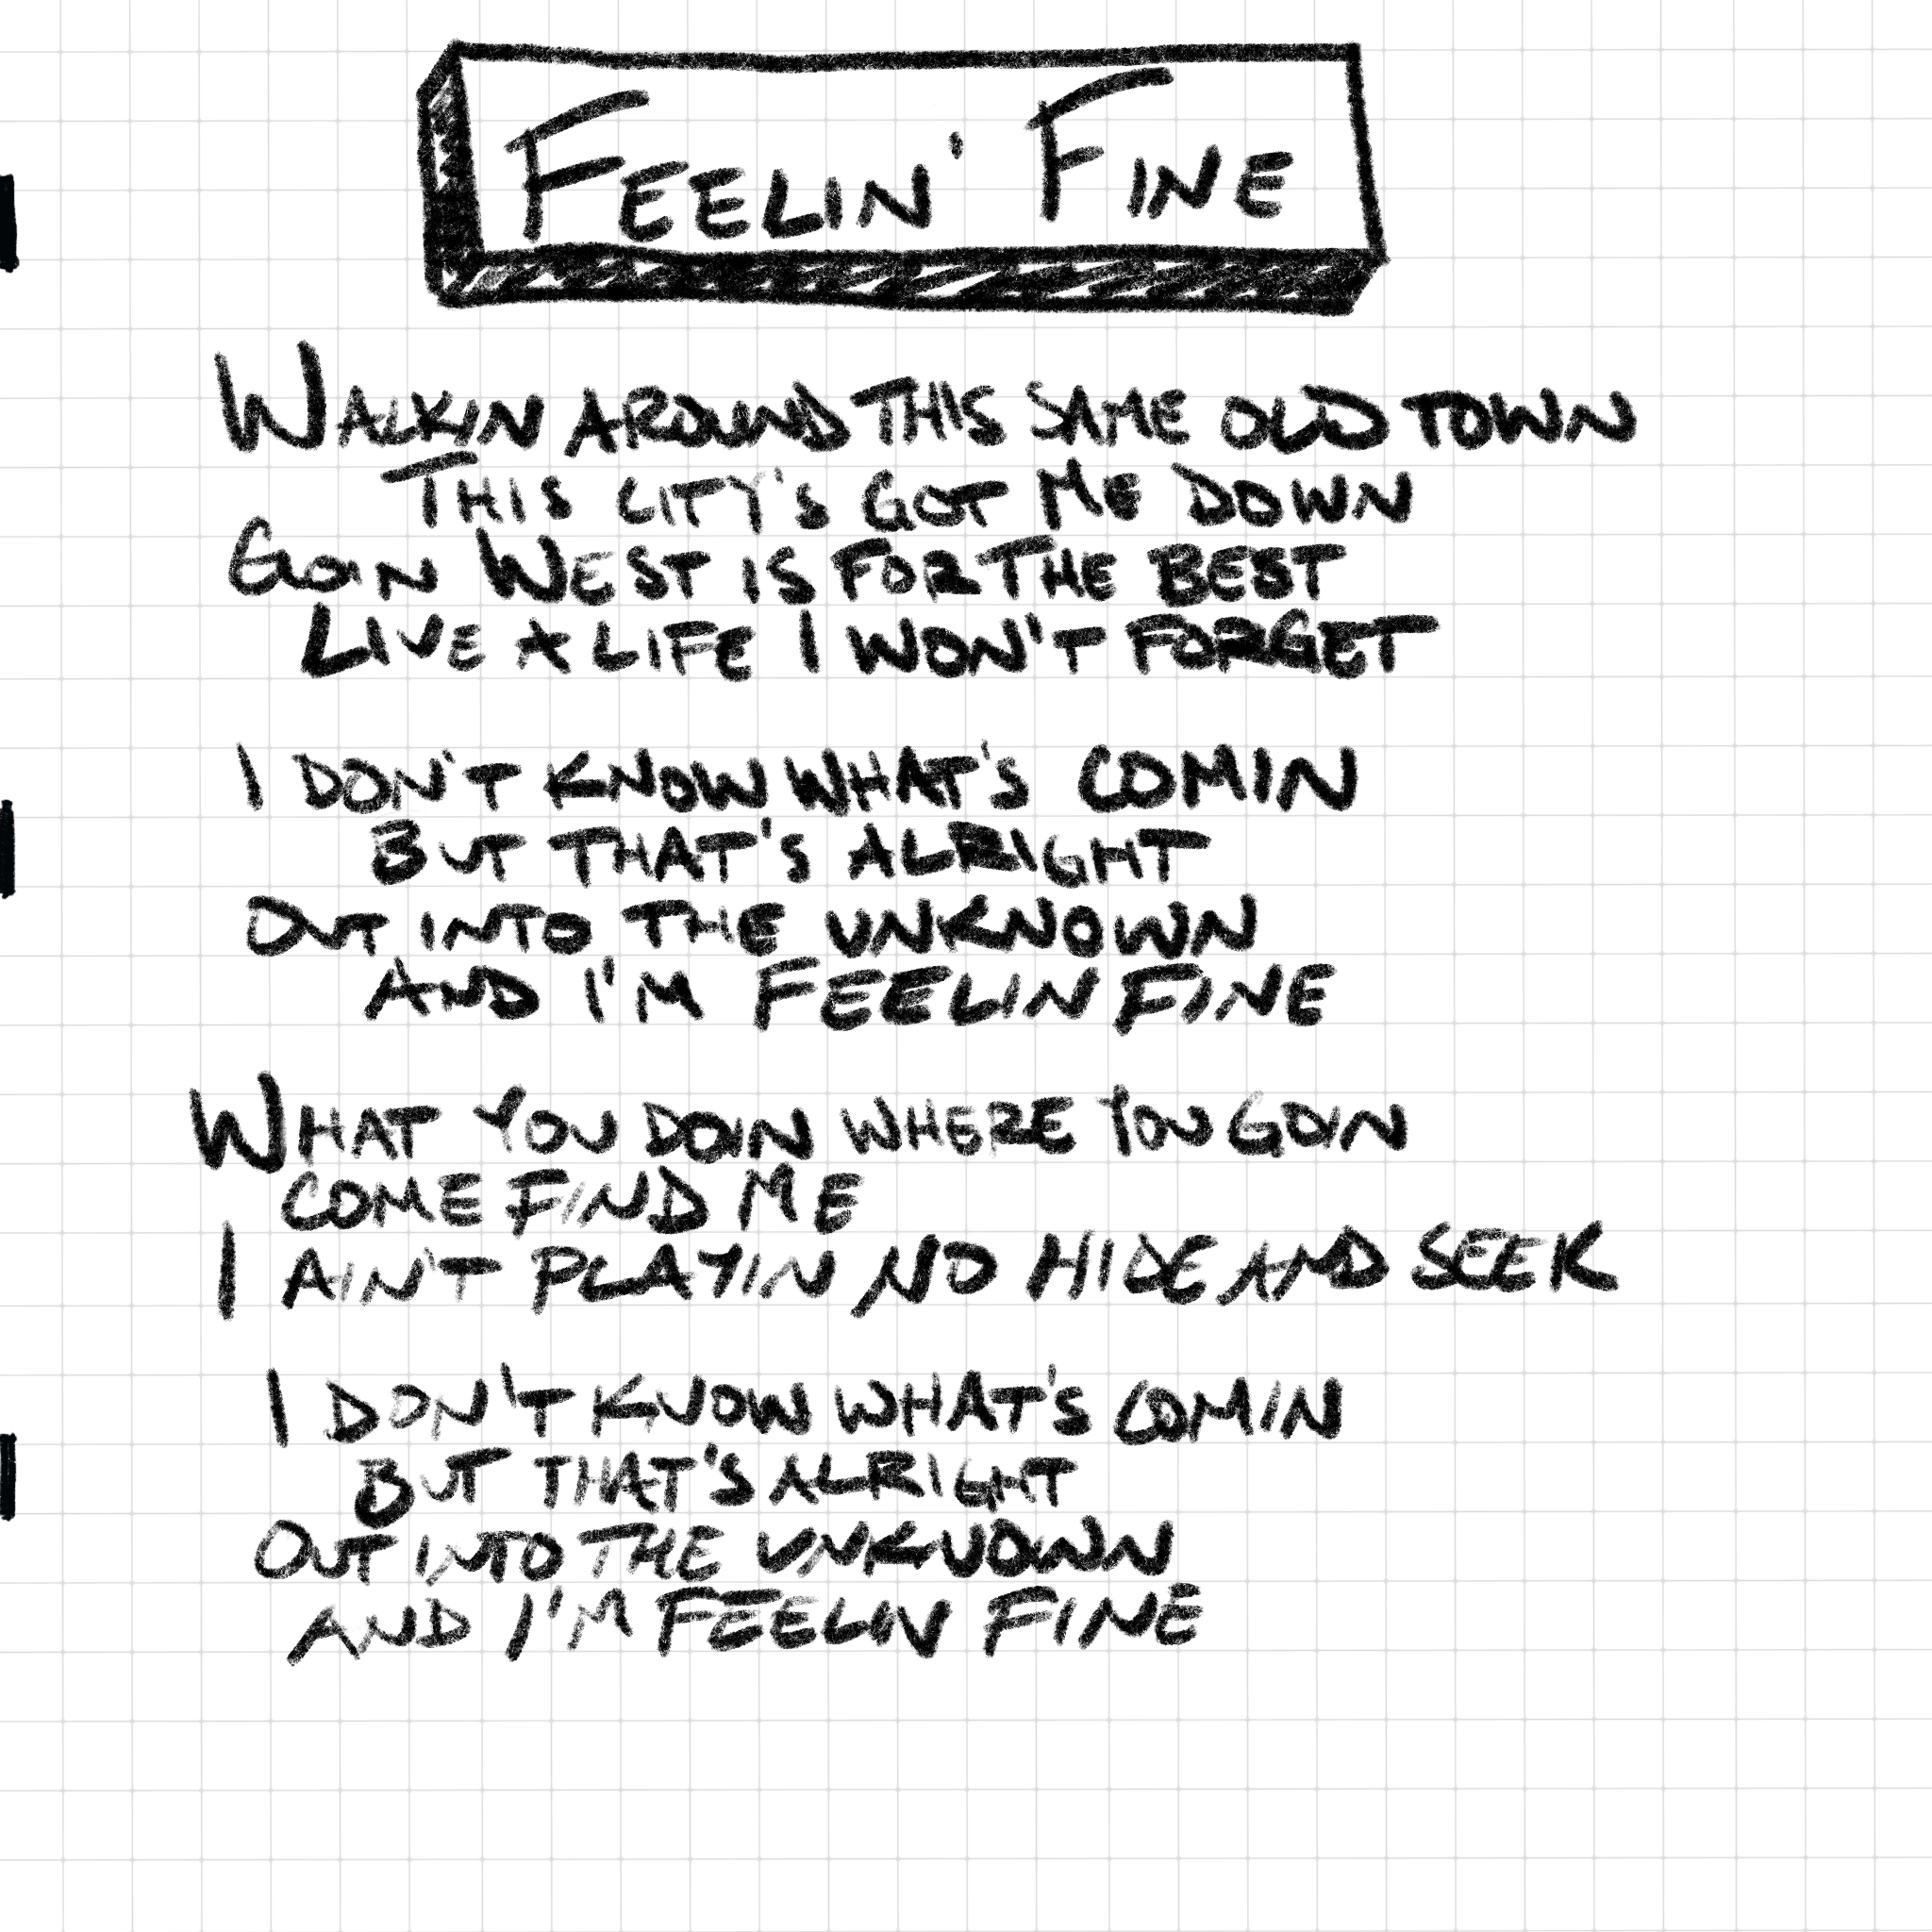 FEELIN' FINE
WALKIN AROUND THIS SAME OLD TOWN
THIS CITY'S GOT ME DOWN
GOIN WEST IS FOR THE BEST
LIVE A LIFE I WON'T FORGET
I DON'T KNOW WHAT'S COMIN
BUT THAT'S ALRIGHT
OUT INTO THE UNKNOWN
AND I'M FEELIN FINE
WHAT YOU DOIN WHERE YOU GOIN
COME FIND ME
I AIN'T PLAYIN NO HIDE AND SEEK
I DON'T KNOW WHAT'S COMIN
BUT THAT'S ALRIGHT
OUT INTO THE UNKNOWN
AND I'M FEELIN FINE